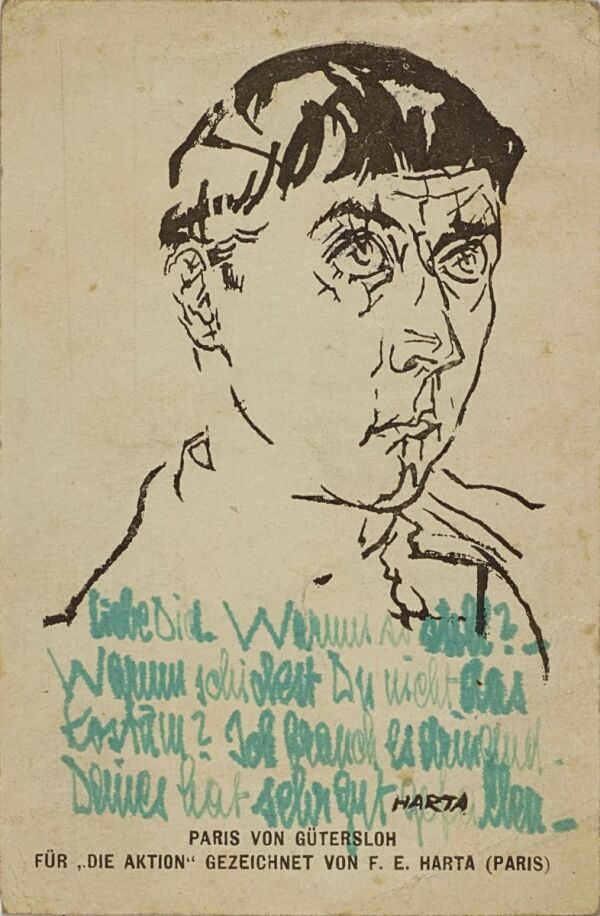 Liebe Dich. Warum so still? –
Warum schickst Du nicht das
Kostüm? Ich brauch es dringend.
Deines hat sehr gut gefallen. –
HARTA
PARIS VON GÜTERSLOH
FÜR „DIE AKTION“ GEZEICHNET VON F. E. HARTA (PARIS)